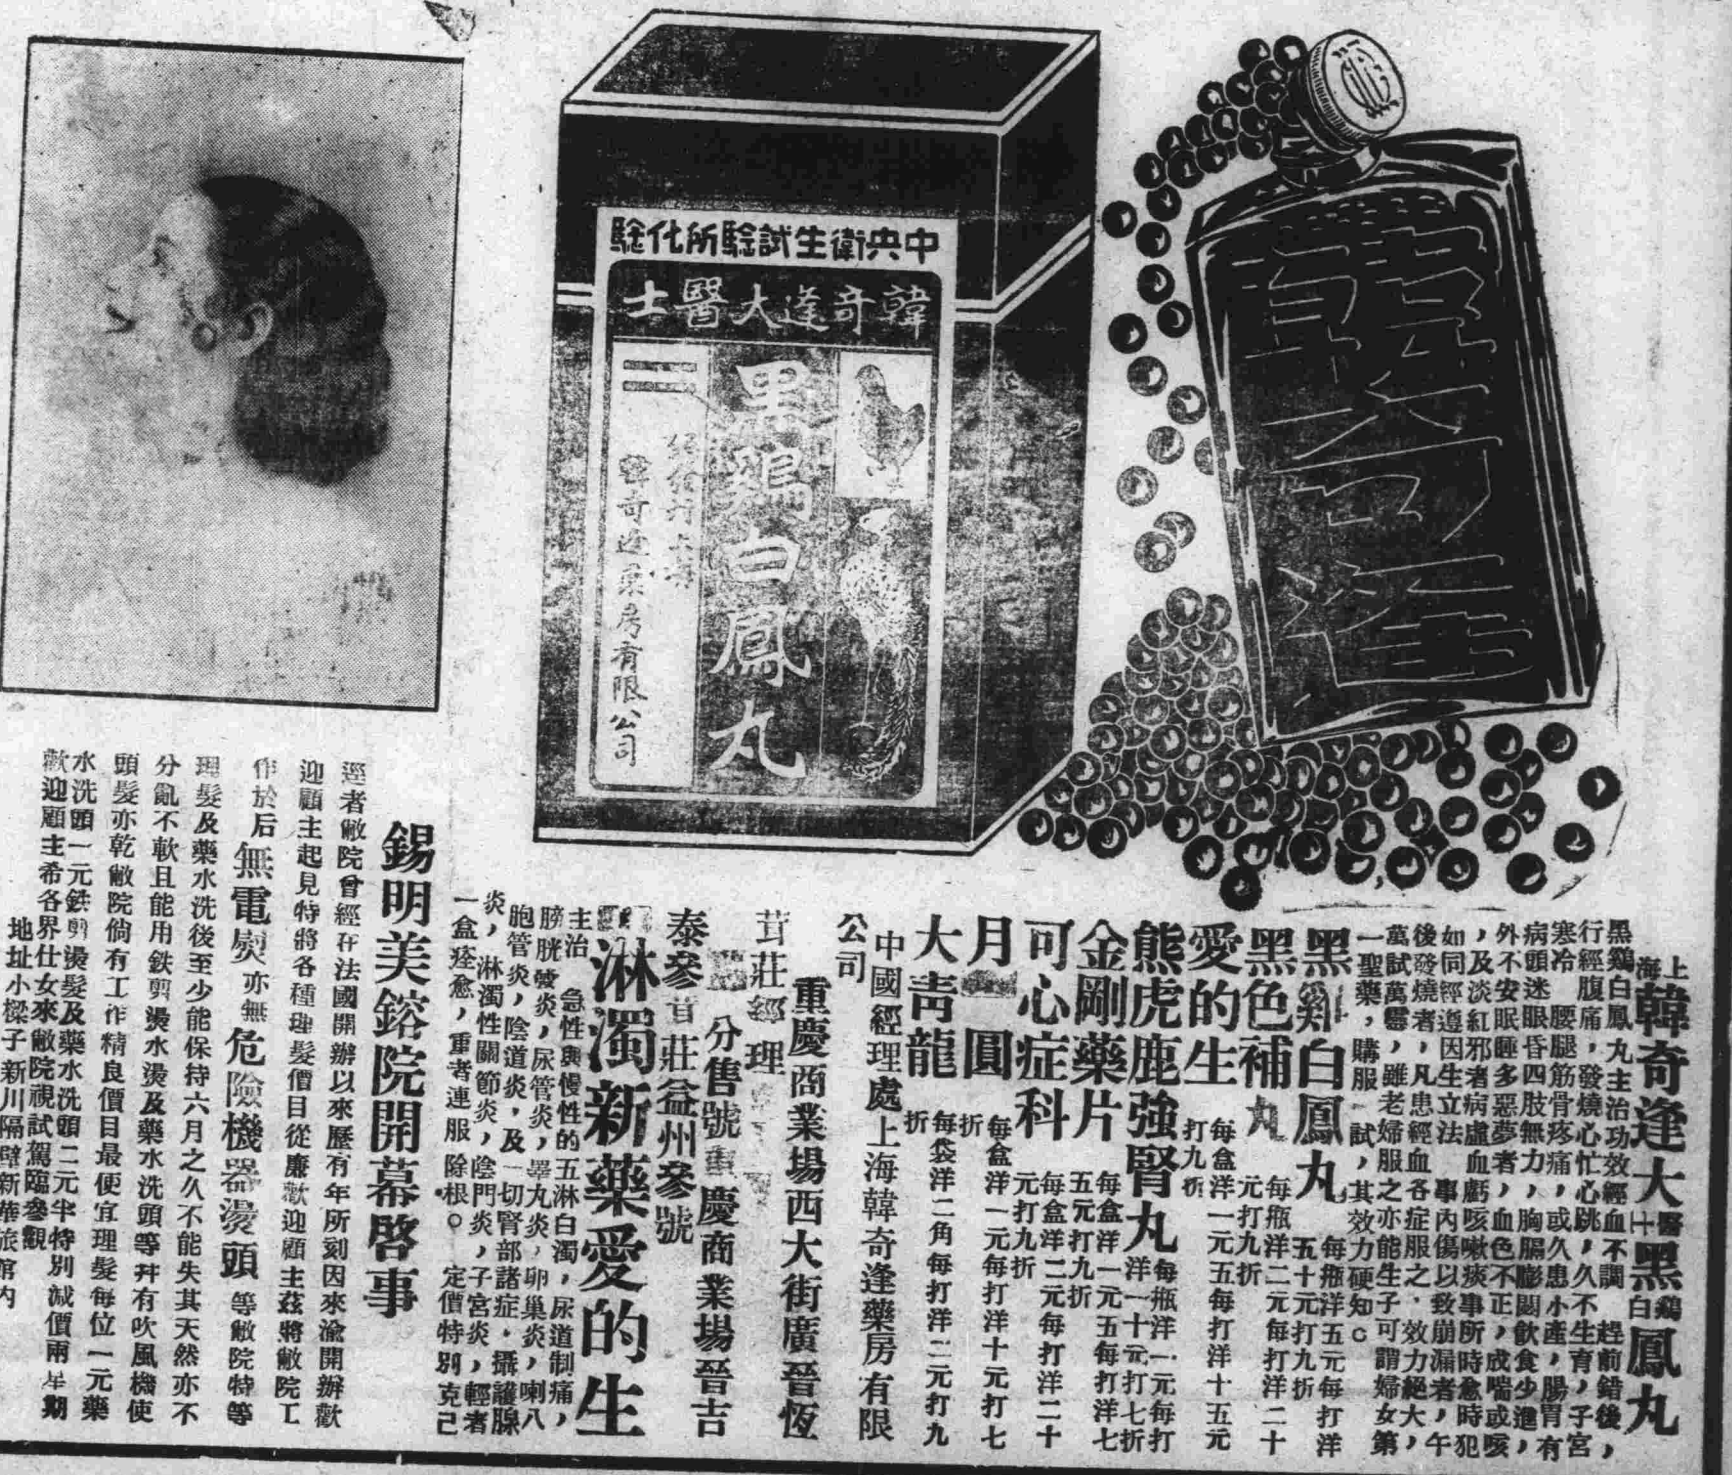 中央衛生試驗所化驗
韓奇逢大醫士
黑鷄白鳳丸
韓奇逢藥房有限公司
韓奇逢
上海韓奇逢大醫士黑鷄白鳳丸
黑鷄白鳳丸主治功效經血不調　趕前錯後，
行經腹痛，發燒心忙心跳，久不生育，子宮
寒冷　腰腿筋骨疼痛，或久患小產，腸胃有
病頭迷眼昏四肢無力，胸膈膨悶飲食少進，
外不安眠睡多惡夢者，血色不正，成喘或咳
，及淡紅邪者病虛血虧咳嗽痰事所時愈時犯
如同輕遵因生立法　事內傷以致崩漏者，午
後發燒者，凡患經血各症服之，效力絕大，
萬試萬靈，雖老婦服之亦能生子可謂婦女第
一聖藥，購服一試，其效力硬知。
黑雞白鳳丸　每瓶洋五元每打洋五十元打九折
黑色補丸　每瓶洋二元每打洋二十元打九折
愛的生　每盒洋一元五每打洋十五元打九折
熊虎鹿強腎丸　每瓶洋一元每打洋一十元打七折
金剛藥片　每盒洋一元五每打洋七五元打九折
可心症科　每盒洋二元每打洋二十元打九折
月　圓　每盒洋一元每打洋十元打七折
大青龍　每袋洋二角每打洋二元打九折
中國經理處上海韓奇逢藥房有限公司
重慶商業場西大街廣晉恆
茸莊經理
分售號重慶商業場晉吉
泰參茸莊益州參號
淋濁新藥愛的生
主治　急性與慢性的五淋白濁，尿道制痛，
膀胱發炎，尿管炎，睪丸炎，卵巢炎，喇八
胞管炎，陰道炎，及一切腎部諸症，攝護腺
炎，淋濁性關節炎，陰門炎，子宮炎，輕者
一盒痊愈，重者連服除根。　定價特別克己
錫明美鎔院開幕啓事
逕者敝院曾經在法國開辦以來歷有年所刻因來渝開辦歡
迎顧主起見特將各種理髮價目從廉歡迎顧主茲將敝院工
作於后無電熨亦無危險機器燙頭等敝院特等
理髮及藥水洗後至少能保持六月之久不能失其天然亦不
分亂不軟且能用鉄剪燙水燙及藥水洗頭等幷有吹風機使
頭髮亦乾敝院倘有工作精良價目最便宜理髮每位一元藥
水洗頭一元鉄剪燙髮及藥水洗頭二元半特別減價兩星期
歡迎顧主希各界仕女來敝院視試駕臨參觀
地址小樑子新川隔壁新華旅館內